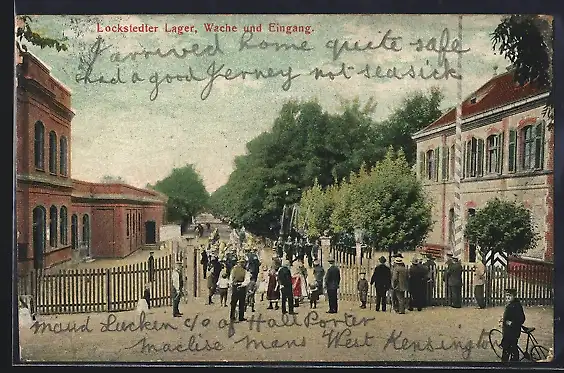 Lockstedter Lager, Wache und Eingang.
I arrived home quite safe
and had a good Jerney not seasick
Maud c/o of Hall Porter
Mansions West Kensington